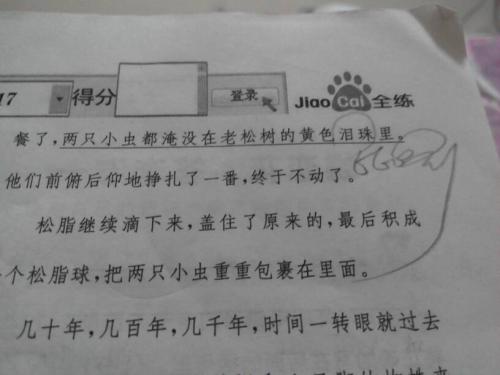 17 得分 登录 Jiao Cai 全练
餐了,两只小虫都淹没在老松树的黄色泪珠里。
他们前俯后仰地挣扎了一番,终于不动了。
松脂继续滴下来,盖住了原来的,最后积成
个松脂球,把两只小虫重重包裹在里面。
几十年,几百年,几千年,时间一转眼就过去